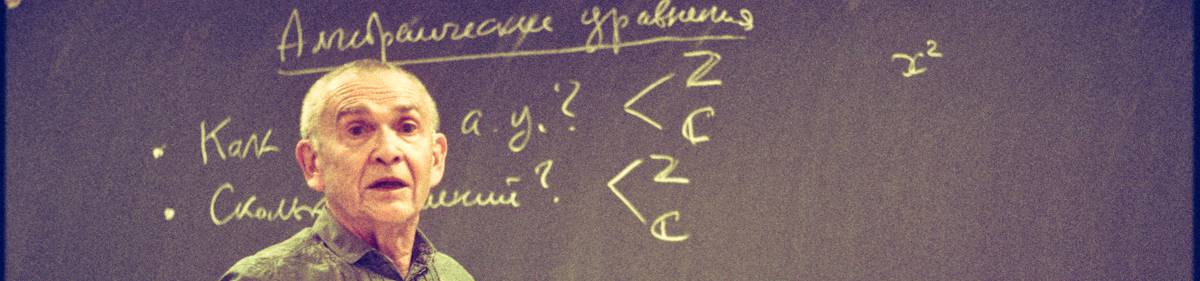 Алгебраические уравнения
x²
• Как а.у.? < ℤ ℂ
• Сколь ений? < ℤ ℂ